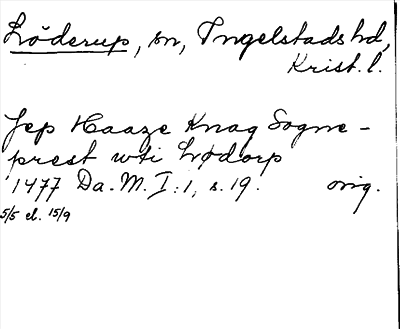 Löderup, sn, Ingelstads hd,
Krist. l.
Jep Haaze Knag Sogne-
prest wti Lødorp
1477 Da. M. I:1, s. 19. orig.
5/5 el. 15/9